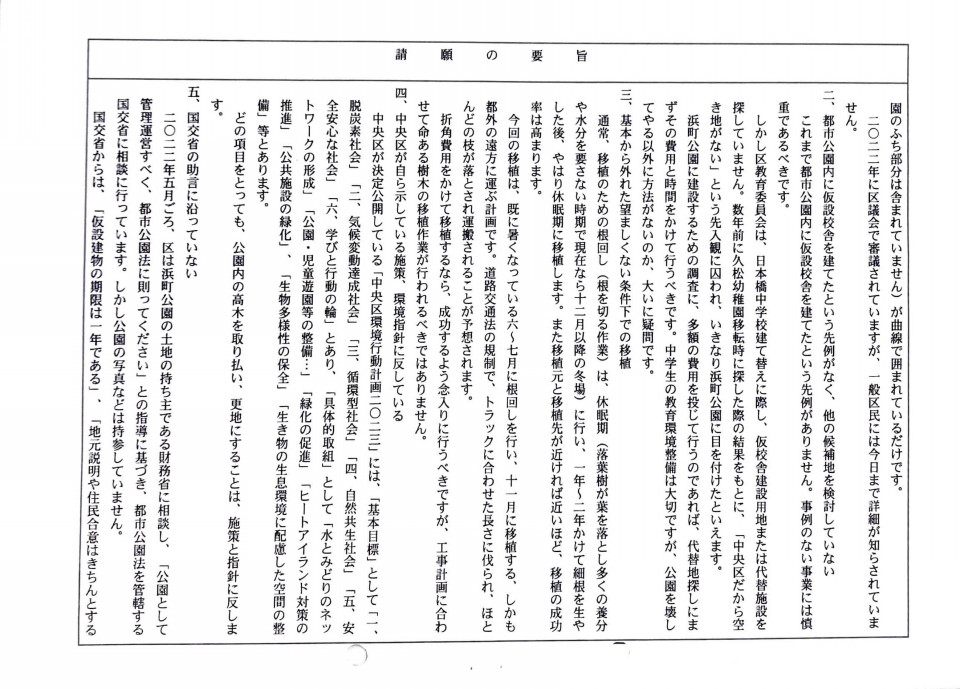 請願の要旨
園のふち部分は含まれていません）が曲線で囲まれているだけです。
二〇二二年に区議会で審議されていますが、一般区民には今日まで詳細が知らされていま
せん。
二、都市公園内に仮設校舎を建てたという先例がなく、他の候補地を検討していない
これまで都市公園内に仮設校舎を建てたという先例がありません。事例のない事業には慎
重であるべきです。
しかし区教育委員会は、日本橋中学校建て替えに際し、仮校舎建設用地または代替施設を
探していません。数年前に久松幼稚園移転時に探した際の結果をもとに、「中央区だから空
き地がない」という先入観に囚われ、いきなり浜町公園に目を付けたといえます。
浜町公園に建設するための調査に、多額の費用を投じて行うのであれば、代替地探しにま
ずその費用と時間をかけて行うべきです。中学生の教育環境整備は大切ですが、公園を壊し
てやる以外に方法がないのか、大いに疑問です。
三、基本から外れた望ましくない条件下での移植
通常、移植のための根回し（根を切る作業）は、休眠期（落葉樹が葉を落とし多くの養分
や水分を要さない時期で現在なら十二月以降の冬場）に行い、一年～二年かけて細根を生や
した後、やはり休眠期に移植します。また移植元と移植先が近ければ近いほど、移植の成功
率は高まります。
今回の移植は、既に暑くなっている六～七月に根回しを行い、十一月に移植する、しかも
都外の遠方に運ぶ計画です。道路交通法の規制で、トラックに合わせた長さに伐られ、ほと
んどの枝が落とされ運搬されることが予想されます。
折角費用をかけて移植するなら、成功するよう念入りに行うべきですが、工事計画に合わ
せて命ある樹木の移植作業が行われるべきではありません。
四、中央区が自ら示している施策、環境指針に反している
中央区が決定公開している「中央区環境行動計画二〇二三」には、「基本目標」として「一、
脱炭素社会」「二、気候変動達成社会」「三、循環型社会」「四、自然共生社会」「五、安
全安心な社会」「六、学びと行動の輪」とあり、「具体的取組」として「水とみどりのネッ
トワークの形成」「公園・児童遊園等の整備…」「緑化の促進」「ヒートアイランド対策の
推進」「公共施設の緑化」、「生物多様性の保全」「生き物の生息環境に配慮した空間の整
備」等とあります。
どの項目をとっても、公園内の高木を取り払い、更地にすることは、施策と指針に反しま
す。
五、国交省の助言に沿っていない
二〇二二年五月ごろ、区は浜町公園の土地の持ち主である財務省に相談し、「公園として
管理運営すべく、都市公園法に則ってください」との指導に基づき、都市公園法を管轄する
国交省に相談に行っています。しかし公園の写真などは持参していません。
国交省からは、「仮設建物の期限は一年である」、「地元説明や住民合意はきちんとする